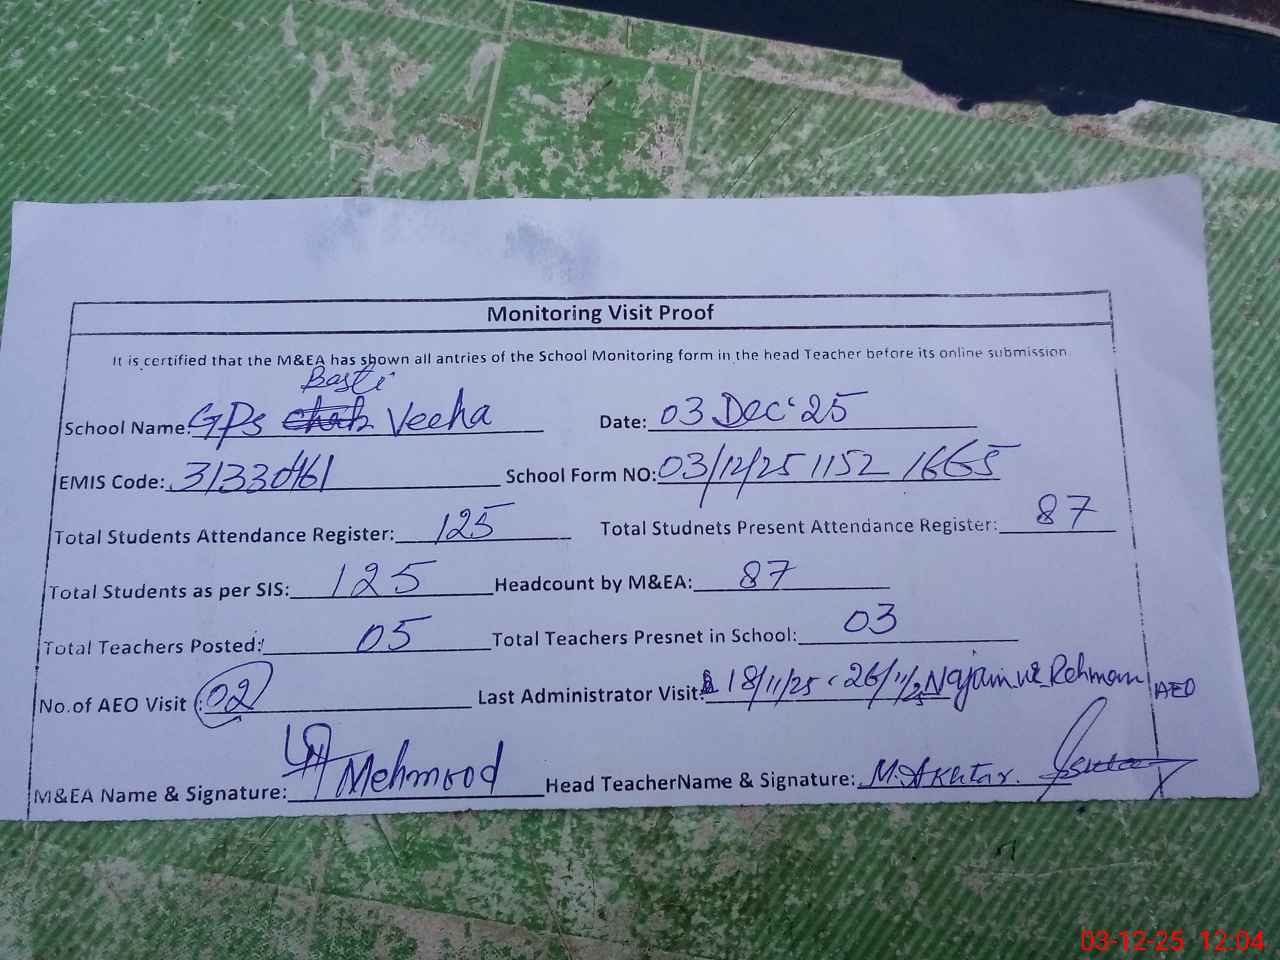 Monitoring Visit Proof
It is certified that the M&EA has shown all antries of the School Monitoring form in the head Teacher before its online submission
Basti
School Name: GPS Veeha Date: 03 Dec'25
EMIS Code: 31330461 School Form NO: 03/12/25 1152 1665
Total Students Attendance Register: 125 Total Studnets Present Attendance Register: 87
Total Students as per SIS: 125 Headcount by M&EA: 87
Total Teachers Posted: 05 Total Teachers Presnet in School: 03
No.of AEO Visit : 02 Last Administrator Visit: 18/11/25, 26/11/25 Najam uz Rehman AEO
M&EA Name & Signature: Mehmood Head TeacherName & Signature: M. Akhtar.
03-12-25 12:04